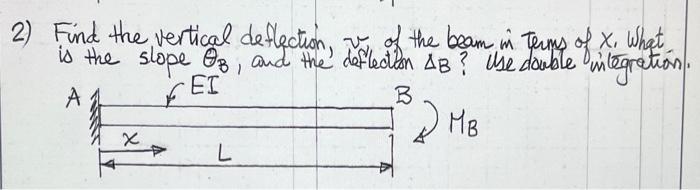 2) Find the vertical deflection, v, of the beam in Terms of x. What
is the slope θB, and the deflection ΔB? Use double integration.
A EI B
MB
x
L